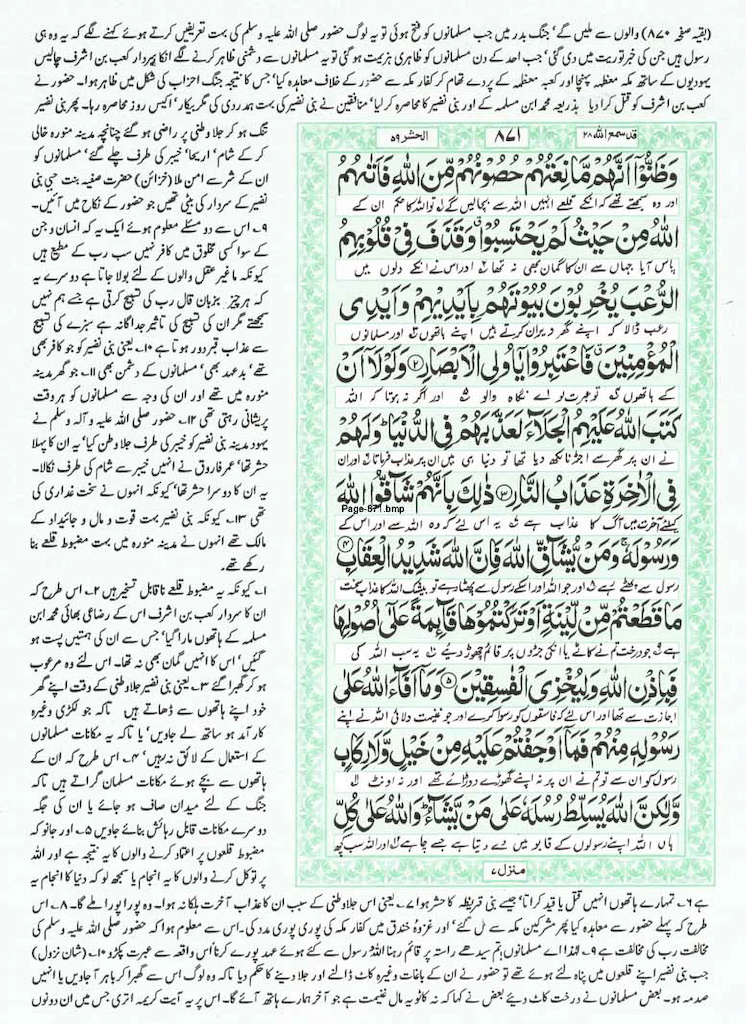 (بقیہ صفحہ ۸۷۰) والوں سے ملیں گے' جنگ بدر میں جب مسلمانوں کو فتح ہوئی تو یہ لوگ حضور صلی اللہ علیہ وسلم کی بہت تعریفیں کرتے ہوئے کہنے لگے کہ یہ وہ ہی
رسول ہیں جن کی خبر توریت میں دی گئی' جب احد کے دن مسلمانوں کو ظاہری ہزیمت ہو گئی تو یہ مسلمانوں سے دشمنی ظاہر کرنے لگے انکا سردار کعب بن اشرف چالیس
یہودیوں کے ساتھ مکہ معظمہ پہنچا اور کعبہ معظمہ کے پردے تھام کر کفار مکہ سے حضور کے خلاف معاہدہ کیا' جس کا نتیجہ جنگ احزاب کی شکل میں ظاہر ہوا۔ حضور نے
کعب بن اشرف کو قتل کرا دیا بذریعہ محمد ابن مسلمہ کے اور بنی نضیر کا محاصرہ کر لیا' منافقین نے بنی نضیر کی بہت ہمدردی کی مگر بیکار' اکیس روز محاصرہ رہا۔ پھر بنی نضیر
تنگ ہو کر جلا وطنی پر راضی ہو گئے چنانچہ مدینہ منورہ خالی
کر کے شام' اریحا' خیبر کی طرف چلے گئے' مسلمانوں کو
ان کے شر سے امن ملا (خزائن) حضرت صفیہ بنت حیی بنی
نضیر کے سردار کی بیٹی تھیں جو حضور کے نکاح میں آئیں۔
۹۔ اس سے دو مسئلے معلوم ہوئے ایک یہ کہ انسان و جن
کے سوا کسی مخلوق میں کافر نہیں سب رب کے مطیع ہیں
کیونکہ ما غیر عقل والوں کے لئے بولا جاتا ہے دوسرے یہ
کہ ہر چیز بزبان قال رب کی تسبیح کرتی ہے جسے ہم نہیں
سمجھتے مگر ان کی تسبیح کی تاثیر جداگانہ ہے سبزے کی تسبیح
سے عذاب قبر دور ہوتا ہے ۱۰۔ یعنی بنی نضیر کو جو کافر بھی
تھے' بدعہد بھی' مسلمانوں کے دشمن بھی ۱۱۔ جو گھر مدینہ
منورہ میں تھے اور ان کی وجہ سے مسلمانوں کو ہر وقت
پریشانی رہتی تھی ۱۲۔ حضور صلی اللہ علیہ و آلہ وسلم نے
یہود مدینہ بنی نضیر کو خیبر کی طرف جلا وطن کیا' یہ ان کا پہلا
حشر تھا' عمر فاروق نے انہیں خیبر سے شام کی طرف نکالا۔
یہ ان کا دوسرا حشر تھا' کیونکہ انہوں نے سخت غداری کی
تھی ۱۳۔ کیونکہ بنی نضیر بہت قوت و مال و جائیداد کے
مالک تھے انہوں نے مدینہ منورہ میں بہت مضبوط قلعے بنا
رکھے تھے۔
۱۔ کیونکہ یہ مضبوط قلعے ناقابل تسخیر ہیں ۲۔ اس طرح کہ
ان کا سردار کعب بن اشرف اس کے رضاعی بھائی محمد ابن
مسلمہ کے ہاتھوں مارا گیا' جس سے ان کی ہمتیں پست ہو
گئیں' اس کا انہیں گمان بھی نہ تھا۔ اس لئے وہ مرعوب
ہو کر گھبرا گئے ۳۔ یعنی بنی نضیر جلا وطنی کے وقت اپنے گھر
خود اپنے ہاتھوں سے ڈھاتے ہیں تاکہ جو لکڑی وغیرہ
کار آمد ہو ساتھ لے جاویں' یا تاکہ یہ مکانات مسلمانوں
کے استعمال کے لائق نہ رہیں' ۴۔ اس طرح کہ ان کے
ہاتھوں سے بچے ہوئے مکانات مسلمان گراتے ہیں تاکہ
جنگ کے لئے میدان صاف ہو جائے یا ان کی جگہ
دوسرے مکانات قابل رہائش بنائے جاویں ۵۔ اور جانو کہ
مضبوط قلعوں پر اعتماد کرنے والوں کا یہ نتیجہ ہے اور اللہ
پر توکل کرنے والوں کا یہ انجام یا سمجھ لو کہ دنیا کا انجام یہ
قد سمع اللہ ۲۸
۸۷۱
الحشر ۵۹
وَظَنُّوْۤا اَنَّهُمْ مَّانِعَتُهُمْ حُصُوْنُهُمْ مِّنَ اللّٰهِ فَاَتٰىهُمُ
اور وہ سمجھتے تھے کہ انکے قلعے انہیں اللہ سے بچالیں گے تو اللہ کا حکم ان کے
اللّٰهُ مِنْ حَيْثُ لَمْ يَحْتَسِبُوْا وَقَذَفَ فِيْ قُلُوْبِهِمُ
پاس آیا جہاں سے ان کا گمان بھی نہ تھا اور اس نے انکے دلوں میں
الرُّعْبَ يُخْرِبُوْنَ بُيُوْتَهُمْ بِاَيْدِيْهِمْ وَاَيْدِي
رعب ڈالا کہ اپنے گھر ویران کرتے ہیں اپنے ہاتھوں اور مسلمانوں
الْمُؤْمِنِيْنَ فَاعْتَبِرُوْا يٰۤاُولِي الْاَبْصَارِ ۝۲ وَلَوْلَاۤ اَنْ
کے ہاتھوں تو عبرت لو اے نگاہ والو اور اگر نہ ہوتا کہ اللہ
كَتَبَ اللّٰهُ عَلَيْهِمُ الْجَلَآءَ لَعَذَّبَهُمْ فِي الدُّنْيَا وَلَهُمْ
نے ان پر گھر سے اجڑنا لکھ دیا تھا تو دنیا ہی میں ان پر عذاب فرماتا اور ان
فِي الْاٰخِرَةِ عَذَابُ النَّارِ ۝۳ ذٰلِكَ بِاَنَّهُمْ شَآقُّوا اللّٰهَ
کیلئے آخرت میں آگ کا عذاب ہے یہ اس لئے کہ وہ اللہ سے اور اس کے
Page-871.bmp
وَرَسُوْلَهٗ وَمَنْ يُّشَآقِّ اللّٰهَ فَاِنَّ اللّٰهَ شَدِيْدُ الْعِقَابِ ۝۴
رسول سے پھٹے رہے اور جو اللہ اور اسکے رسول سے پھٹا رہے تو بیشک اللہ کا عذاب سخت
مَا قَطَعْتُمْ مِّنْ لِّيْنَةٍ اَوْ تَرَكْتُمُوْهَا قَآئِمَةً عَلٰۤى اُصُوْلِهَا
ہے جو درخت تم نے کاٹے یا انکی جڑوں پر قائم چھوڑ دیئے یہ سب اللہ کی
فَبِاِذْنِ اللّٰهِ وَلِيُخْزِيَ الْفٰسِقِيْنَ ۝۵ وَمَاۤ اَفَآءَ اللّٰهُ عَلٰى
اجازت سے تھا اور اس لئے کہ فاسقوں کو رسوا کرے اور جو غنیمت دلائی اللہ نے اپنے
رَسُوْلِهٖ مِنْهُمْ فَمَاۤ اَوْجَفْتُمْ عَلَيْهِ مِنْ خَيْلٍ وَّلَا رِكَابٍ
رسول کو ان سے تو تم نے ان پر نہ اپنے گھوڑے دوڑائے تھے اور نہ اونٹ
وَّلٰكِنَّ اللّٰهَ يُسَلِّطُ رُسُلَهٗ عَلٰى مَنْ يَّشَآءُ وَاللّٰهُ عَلٰى كُلِّ
ہاں اللہ اپنے رسولوں کے قابو میں دے دیتا ہے جسے چاہے اور اللہ سب کچھ
منزل ۷
ہے ۶۔ تمہارے ہاتھوں انہیں قتل یا قید کراتا' جیسے بنی قریظہ کا حشر ہوا ۷۔ یعنی اس جلا وطنی کے سبب ان کا عذاب آخرت ہلکا نہ ہوا۔ وہ پورا پورا ملے گا۔ ۸۔ اس
طرح کہ پہلے حضور سے معاہدہ کیا پھر مشرکین مکہ سے مل گئے' اور غزوہ خندق میں کفار مکہ کی پوری پوری مدد کی۔ اس سے معلوم ہوا کہ حضور صلی اللہ علیہ وسلم کی
مخالفت رب کی مخالفت ہے ۹۔ لہٰذا اے مسلمانوں تم سیدھے راستہ پر قائم رہنا اللہ رسول سے کئے ہوئے عہد پورے کرنا اس واقعہ سے عبرت پکڑو ۱۰۔ (شان نزول)
جب بنی نضیر اپنے قلعوں میں پناہ لئے ہوئے تھے تو حضور نے ان کے باغات وغیرہ کاٹ ڈالنے اور جلا دینے کا حکم دیا تاکہ وہ لوگ اس سے گھبرا کر باہر آ جاویں یا انہیں
صدمہ ہو۔ بعض مسلمانوں نے درخت کاٹ دیئے بعض نے کہا کہ نہ کاٹو یہ مال غنیمت ہے جو آخر ہمارے ہاتھ آئے گا۔ اس پر یہ آیت کریمہ اتری جس میں ان دونوں